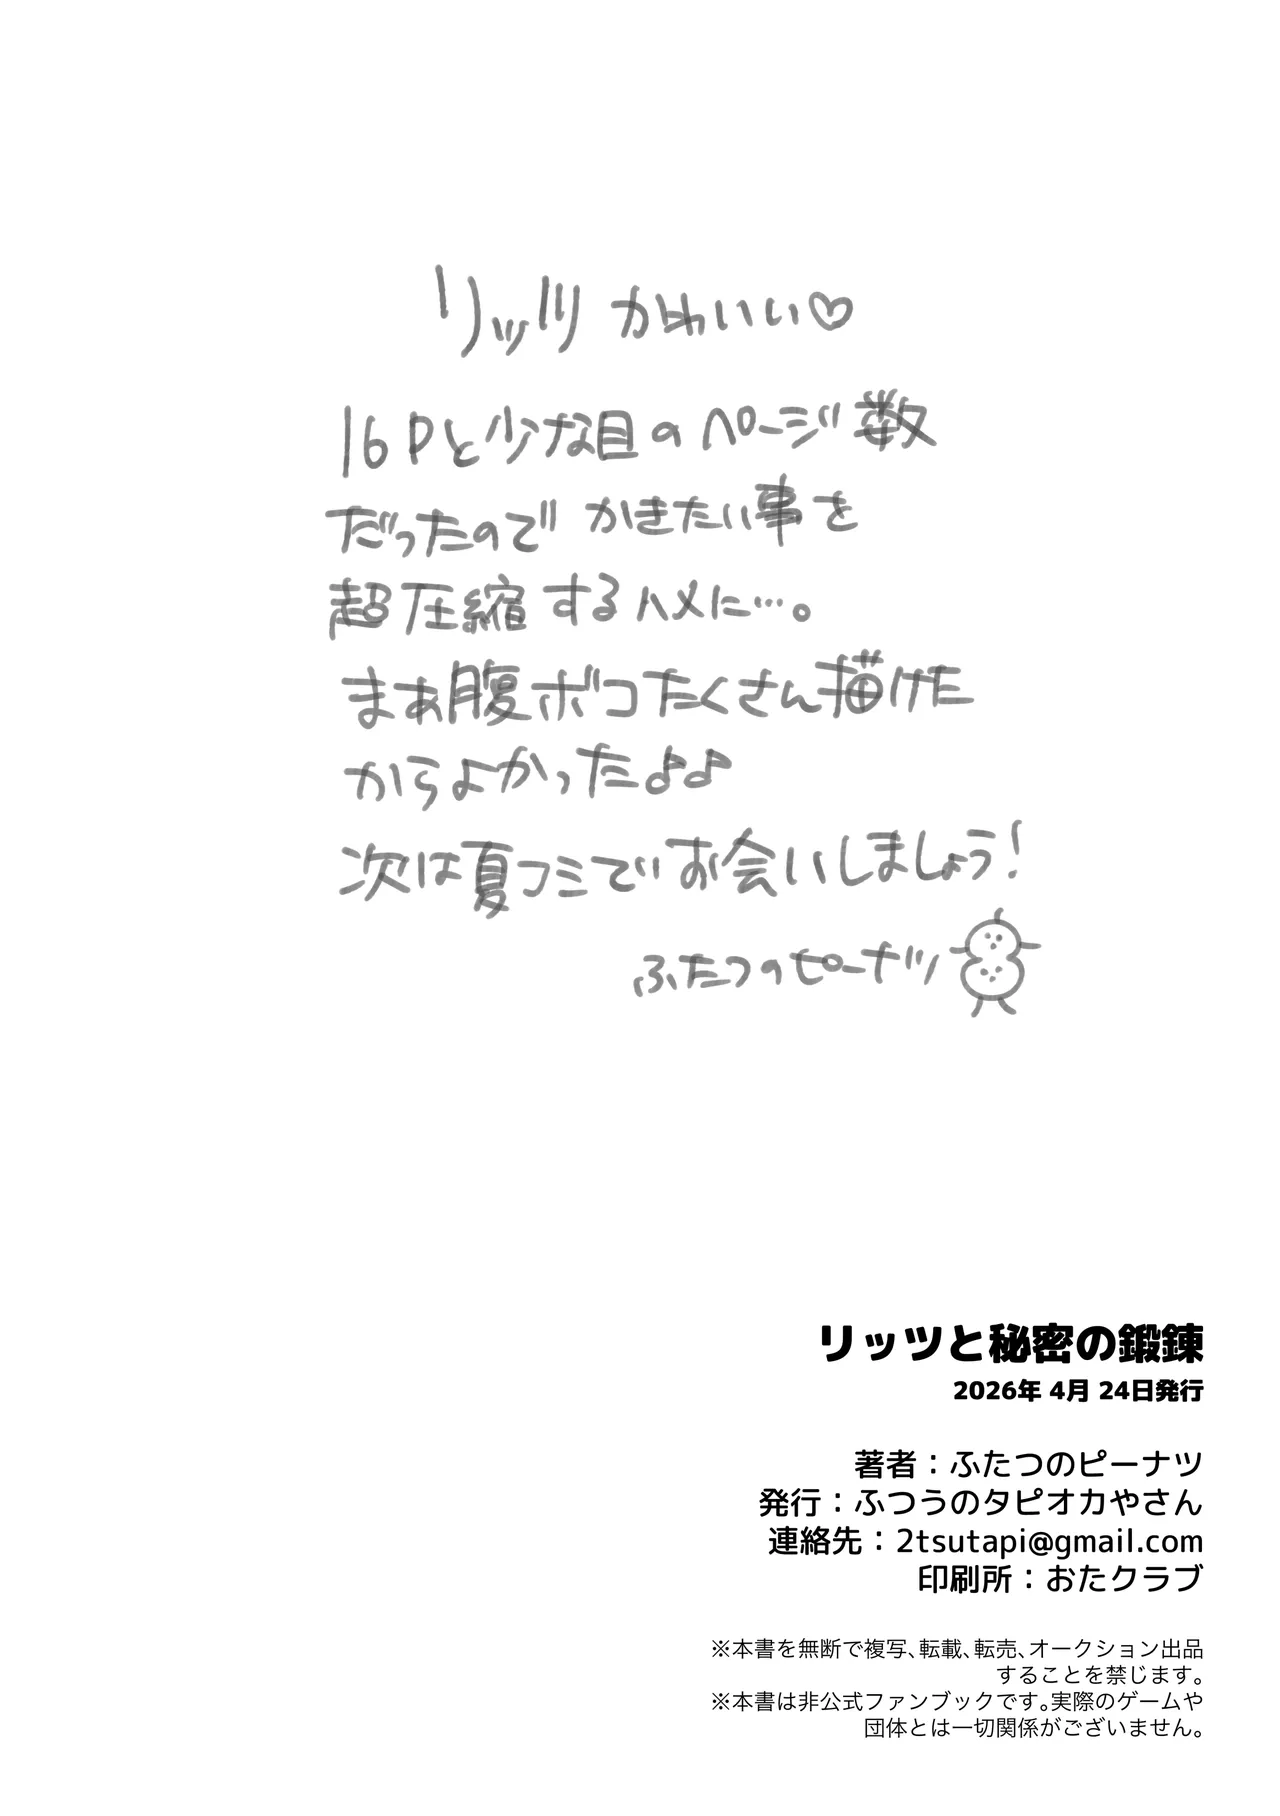 リッツ かわいい♡
16Pと少な目のページ数
だったので かきたい事を
超圧縮するハメに…。
まぁ腹ボコたくさん描けた
からよかったよ♪
次は夏コミでお会いしましょう！
ふたつのピーナツ
リッツと秘密の鍛錬
2026年 4月 24日発行
著者：ふたつのピーナツ
発行：ふつうのタピオカやさん
連絡先：2tsutapi@gmail.com
印刷所：おたクラブ
※本書を無断で複写、転載、転売、オークション出品
することを禁じます。
※本書は非公式ファンブックです。実際のゲームや
団体とは一切関係がございません。